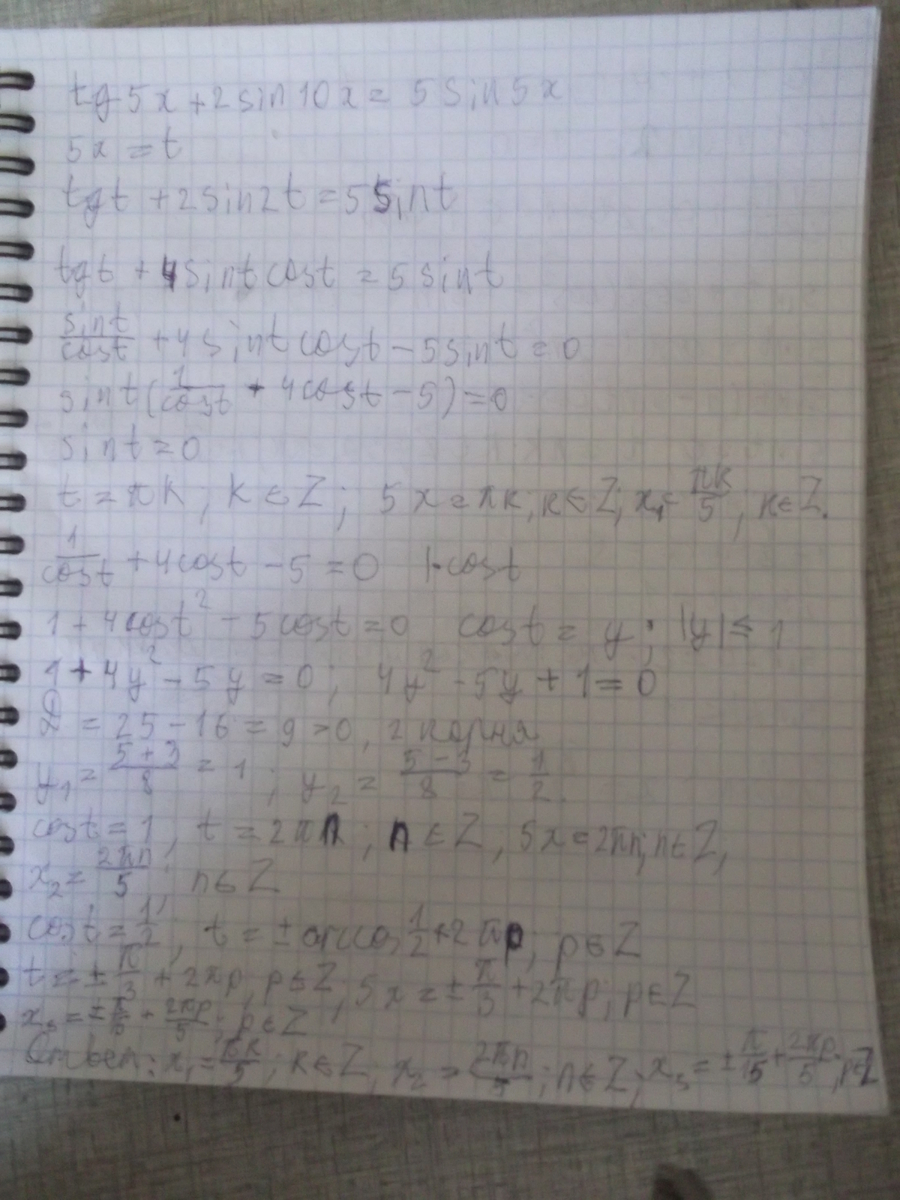 tg 5x + 2 sin 10x = 5 sin 5x
5x = t
tgt + 2sin2t = 5 sint
tgt + 4sint cost = 5 sint
sint/cost + 4sint cost - 5sint = 0
sint(1/cost + 4cost - 5) = 0
sint = 0
t = πk; k ∈ Z; 5x = πk; k ∈ Z; x₁ = πk/5, k ∈ Z.
1/cost + 4cost - 5 = 0 |·cost
1 + 4cost² - 5cost = 0 cost = y; |y| ≤ 1
1 + 4y² - 5y = 0; 4y² - 5y + 1 = 0
D = 25 - 16 = 9 > 0, 2 корня
y₁ = (5+3)/8 = 1; y₂ = (5-3)/8 = 1/2
cost = 1, t = 2πn; n ∈ Z, 5x = 2πn, n ∈ Z,
x₂ = 2πn/5; n ∈ Z
cost = 1/2, t = ± arccos 1/2 + 2πp; p ∈ Z
t = ± π/3 + 2πp, p ∈ Z; 5x = ± π/3 + 2πp; p ∈ Z
x₃ = ± π/15 + 2πp/5; p ∈ Z
Ответ: x₁ = πk/5; k ∈ Z; x₂ = 2πn/5; n ∈ Z; x₃ = ± π/15 + 2πp/5; p ∈ Z